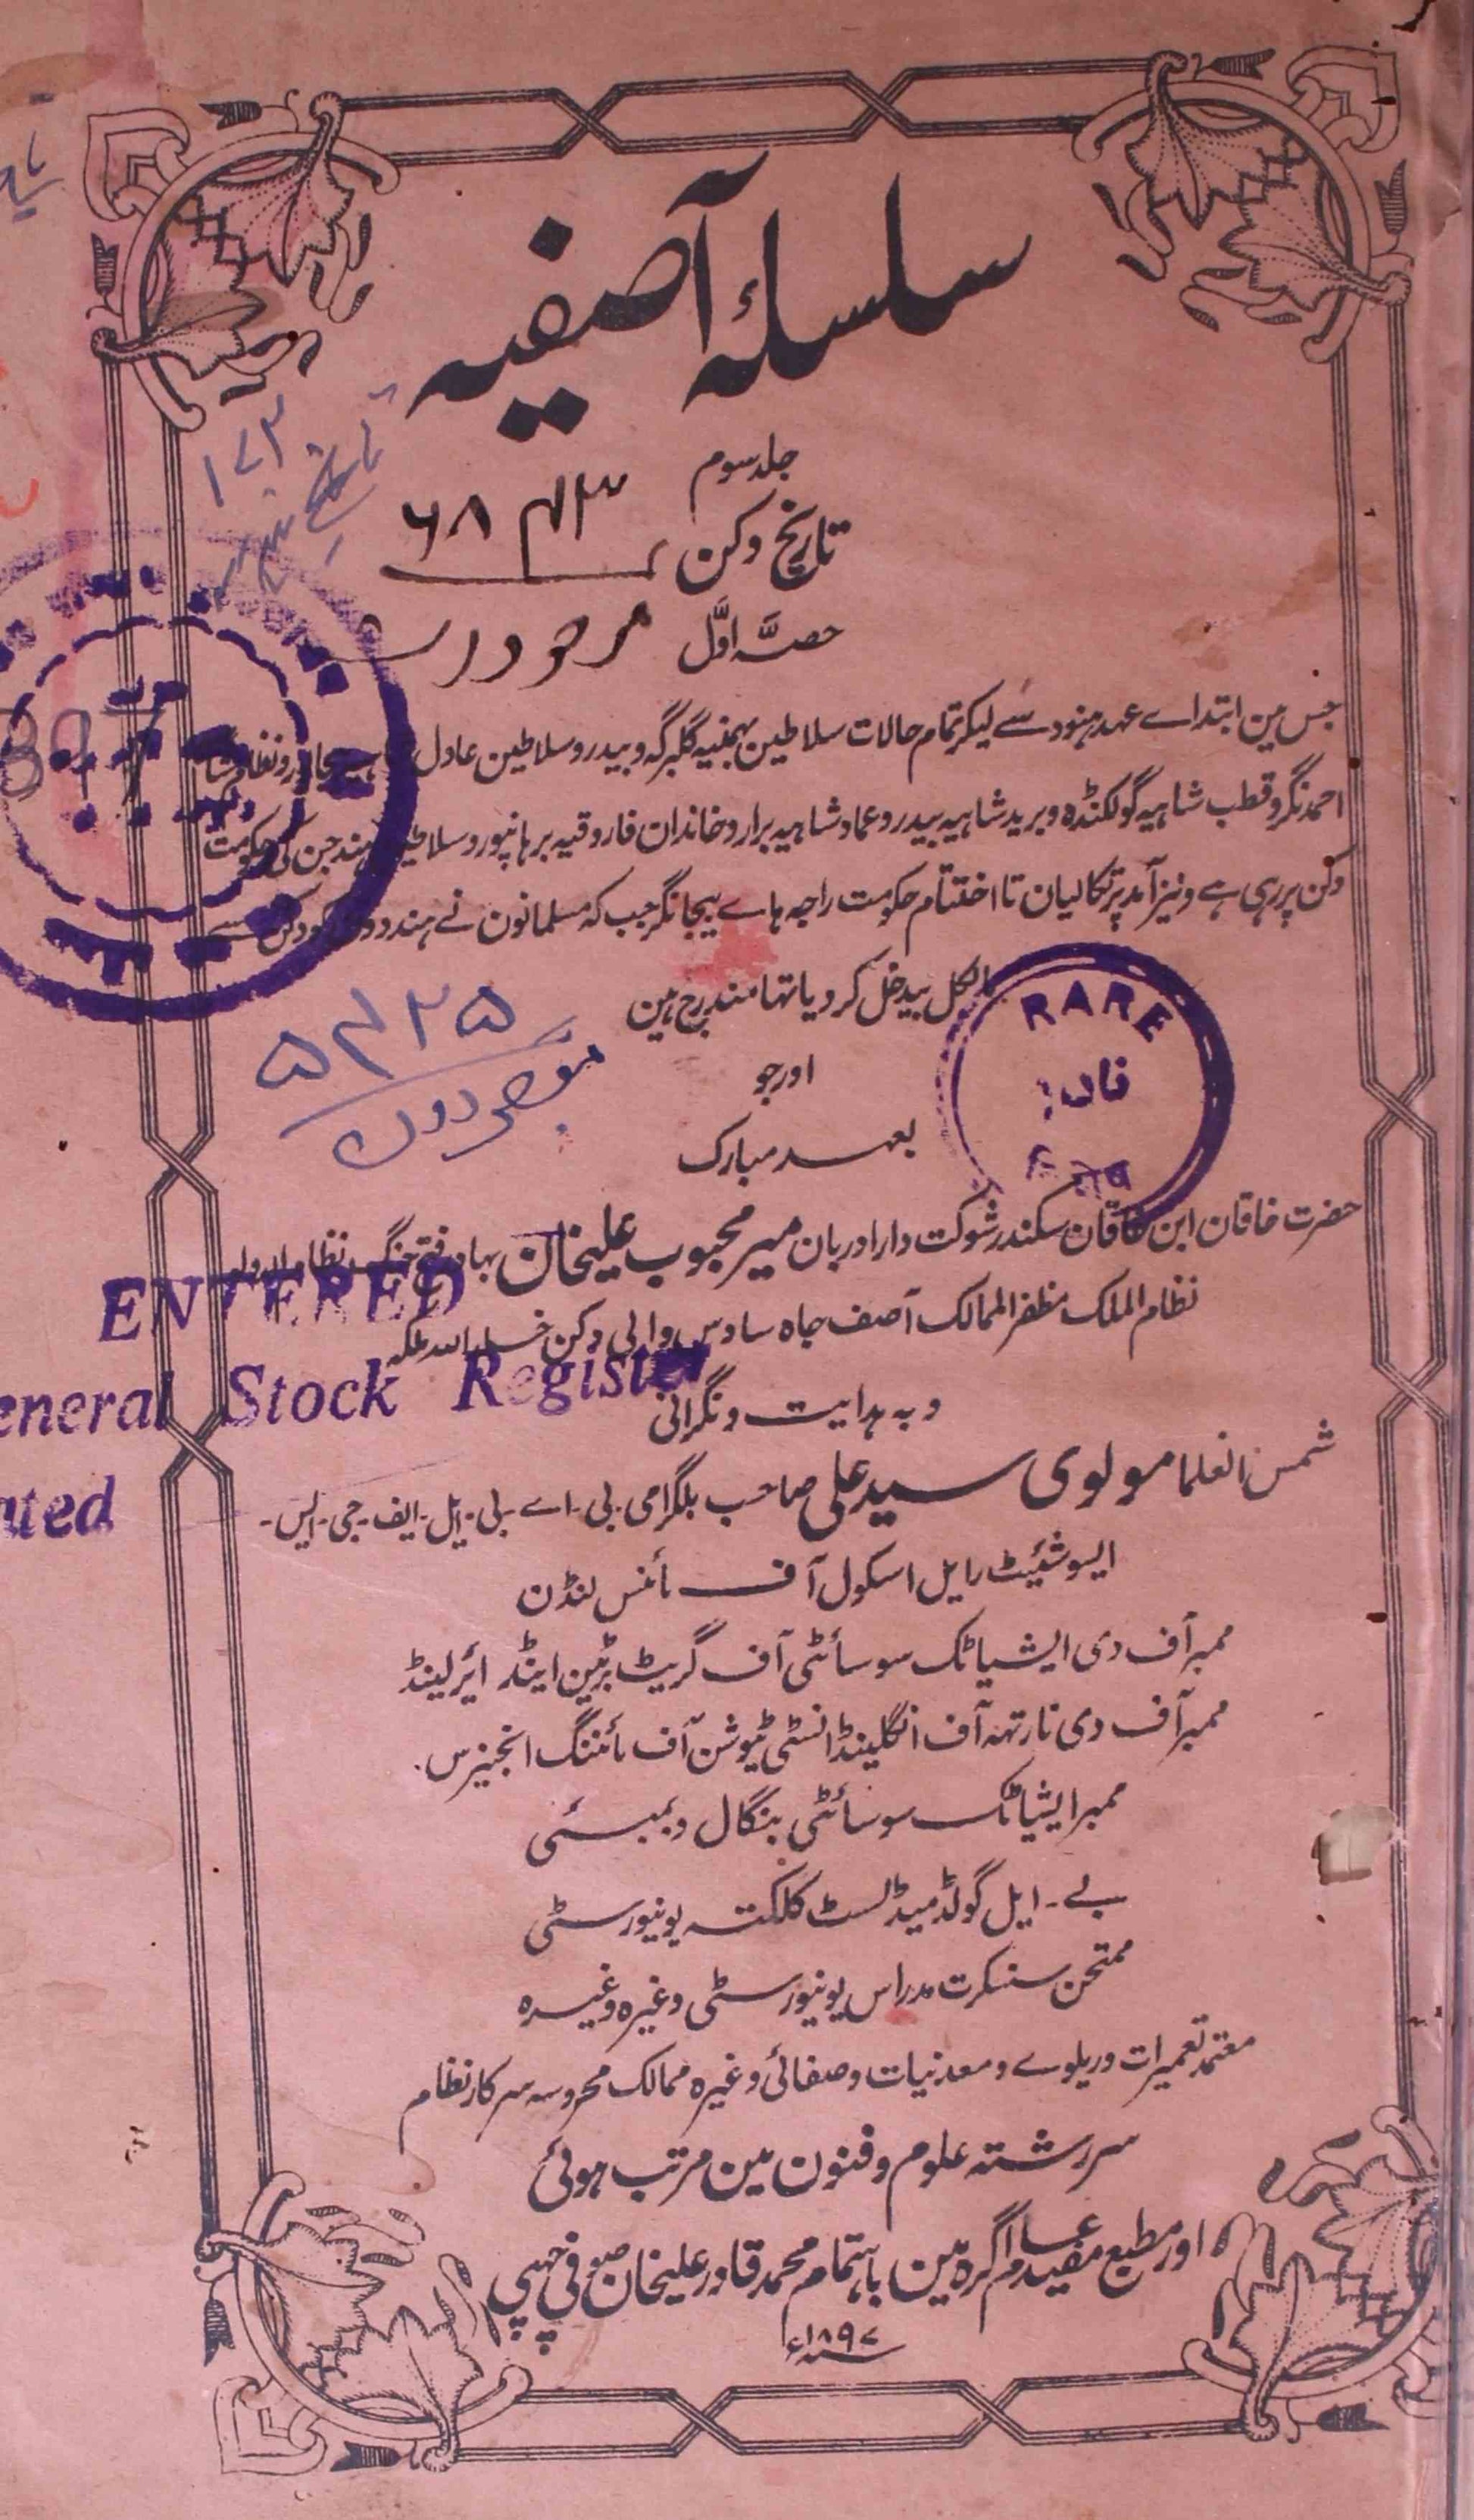 سلسلۂ آصفیہ
جلد سوم
تاریخ دکن
حصّہ اوّل
جس مین ابتداے عہد ہنود سے لیکر تمام حالات سلاطین بہمنیہ گلبرگہ و بیدر و سلاطین عادل
احمد نگر و قطب شاہیہ گولکنڈہ و برید شاہیہ بیدر و عماد شاہیہ برار و خاندان فاروقیہ برہانپور و سلاطین ہند جن کی حکومت
دکن پر رہی ہے و نیز آمد پرتگالیان تا اختتام حکومت راجہ ہاے بیجانگر جب کہ مسلمانون نے ہندوون کو دکن سے
بالکل بیدخل کر دیا تہا مندرج ہین
اور جو
بعہد مبارک
حضرت خاقان ابن خاقان سکندر شوکت دارا دربان میر محبوب علیخان بہادر فتح جنگ نظام الدولہ
نظام الملک مظفر الممالک آصف جاہ سادس والی دکن خلد اللہ ملکہ
و بہ ہدایت و نگرانی
شمس العلما مولوی سید علی صاحب بلگرامی بی-اے-بی-ایل-ایف-جی-ایس-
ایسوشیئیٹ رایل اسکول آف مائنس لنڈن
ممبر آف دی ایشیاٹک سوسائٹی آف گریٹ برٹین اینڈ ائرلینڈ
ممبر آف دی نارتہہ آف انگلینڈ انسٹی ٹیوشن آف مائننگ انجنیرس.
ممبر ایشیاٹک سوسائٹی بنگال و بمبئی
بے-ایل گولڈ میڈلسٹ کلکتہ یونیورسٹی
ممتحن سنسکرت مدراس یونیورسٹی وغیرہ وغیرہ
معتمد تعمیرات و ریلوے و معدنیات و صفائی وغیرہ ممالک محروسہ سرکار نظام
سررشتہ علوم و فنون مین مرتب ہوئی
اور مطبع مفید عام اگرہ مین باہتمام محمد قادر علیخان صوفی چھپی
سنہ ۱۸۹۷ء
۱۷۲
۶۸ ۴۳
۵۴۲۵
RARE
ENTERED
General Stock Register